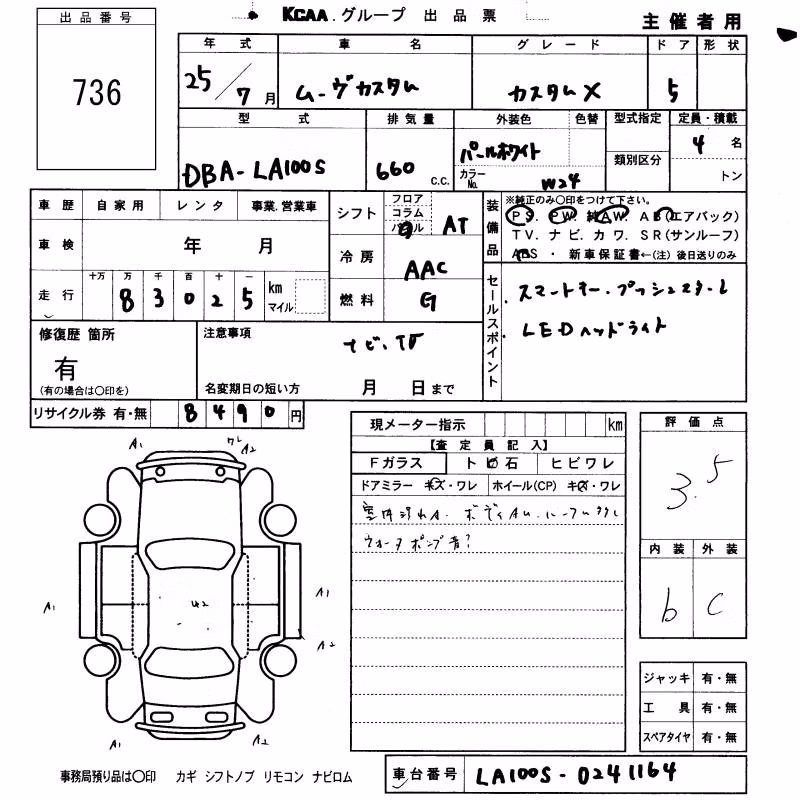 KCAA.グループ 出品票
主催者用
出品番号
736
年式 車名 グレード ドア 形状
25/7月 ムーヴカスタム カスタムX 5
型式 排気量 外装色 色替 型式指定 定員・積載
DBA-LA100S 660 c.c. パールホワイト 4名
カラーNo. W24 類別区分 トン
車歴 自家用 レンタ 事業.営業車
シフト フロア コラム パネル AT
装備品 ※純正のみ〇印をつけて下さい。
PS. PW. 純AW. AB(エアバック)
TV. ナビ. カワ. SR(サンルーフ)
ABS・新車保証書←(注) 後日送りのみ
車検 年 月
冷房 AAC
走行 十万 万 千 百 十 一
8 3 0 2 5 km マイル
燃料 G
セールスポイント
スマートキー.プッシュスタート
LEDヘッドライト
修復歴 箇所
有
(有の場合は〇印を)
注意事項
ナビ、TV
名変期日の短い方 月 日まで
リサイクル券 有・無 8490円
現メーター指示 km
【査定員記入】
Fガラス ト ビ 石 ヒビワレ
ドアミラー キズ・ワレ ホイール(CP) キズ・ワレ
ウォータポンプ音?
評価点
3.5
内装 外装
b C
A1 A2
A1 U2 A1
A2
A1 A2
ジャッキ 有・無
工具 有・無
スペアタイヤ 有・無
事務局預り品は〇印 カギ シフトノブ リモコン ナビロム
車台番号 LA100S-0241164